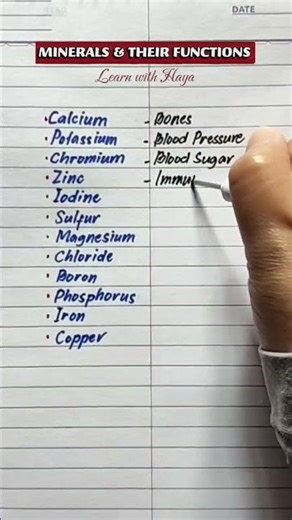 DATE
MINERALS & THEIR FUNCTIONS
Learn with Haya
• Calcium - Bones
• Potassium - Blood Pressure
• Chromium - Blood Sugar
• Zinc - Immu
• Iodine
• Sulfur
• Magnesium
• Chloride
• Boron
• Phosphorus
• Iron
• Copper